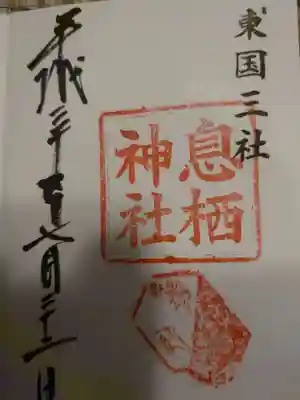 東国三社
息栖
神社
平成三十年七月二十二日